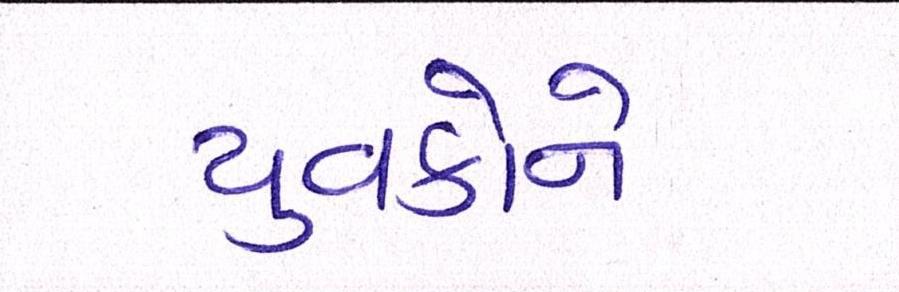 યુવકોને